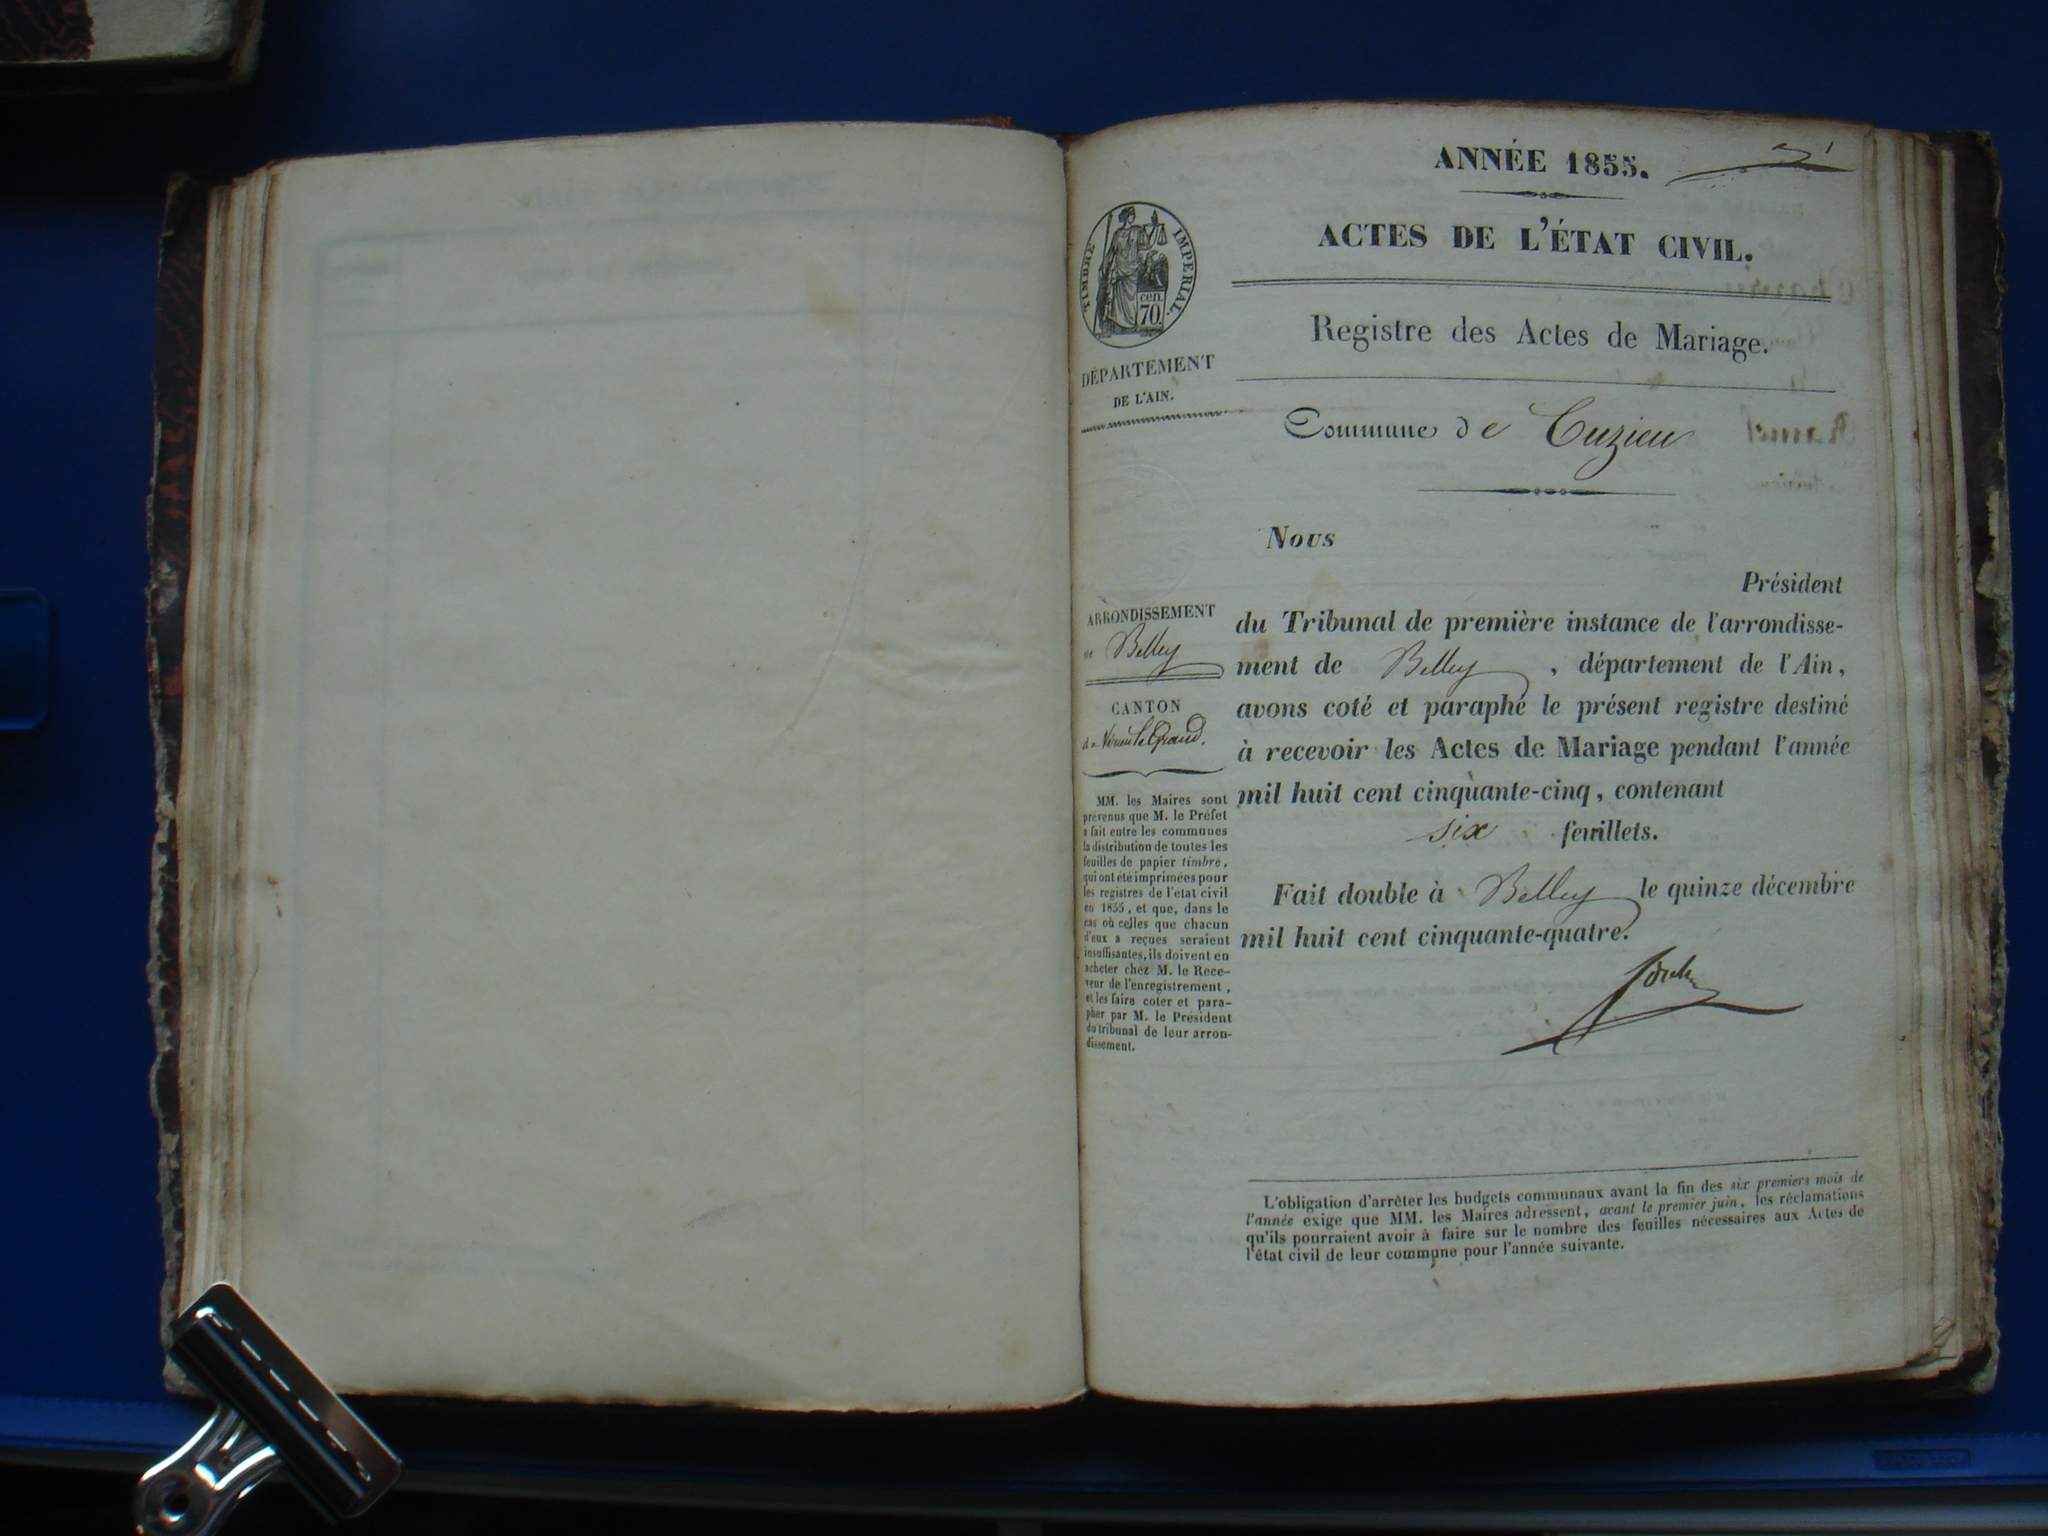 ANNÉE 1855.
ACTES DE L'ÉTAT CIVIL.
Registre des Actes de Mariage.
Commune de Cuzieu
TIMBRE IMPERIAL.
cen.
70
DÉPARTEMENT
DE L'AIN.
ARRONDISSEMENT
de Belley
CANTON
de Virieu le Grand.
MM. les Maires sont
prévenus que M. le Préfet
a fait entre les communes
la distribution de toutes les
feuilles de papier timbré,
qui ont été imprimées pour
les registres de l'état civil
en 1855, et que, dans le
cas où celles que chacun
d'eux a reçues seraient
insuffisantes, ils doivent en
acheter chez M. le Rece-
veur de l'enregistrement,
et les faire coter et para-
pher par M. le Président
du tribunal de leur arron-
dissement.
Nous
Président
du Tribunal de première instance de l'arrondisse-
ment de Belley, département de l'Ain,
avons coté et paraphé le présent registre destiné
à recevoir les Actes de Mariage pendant l'année
mil huit cent cinquante-cinq, contenant
six feuillets.
Fait double à Belley le quinze décembre
mil huit cent cinquante-quatre.
L'obligation d'arrêter les budgets communaux avant la fin des six premiers mois de
l'année exige que MM. les Maires adressent, avant le premier juin, les réclamations
qu'ils pourraient avoir à faire sur le nombre des feuilles nécessaires aux Actes de
l'état civil de leur commune pour l'année suivante.